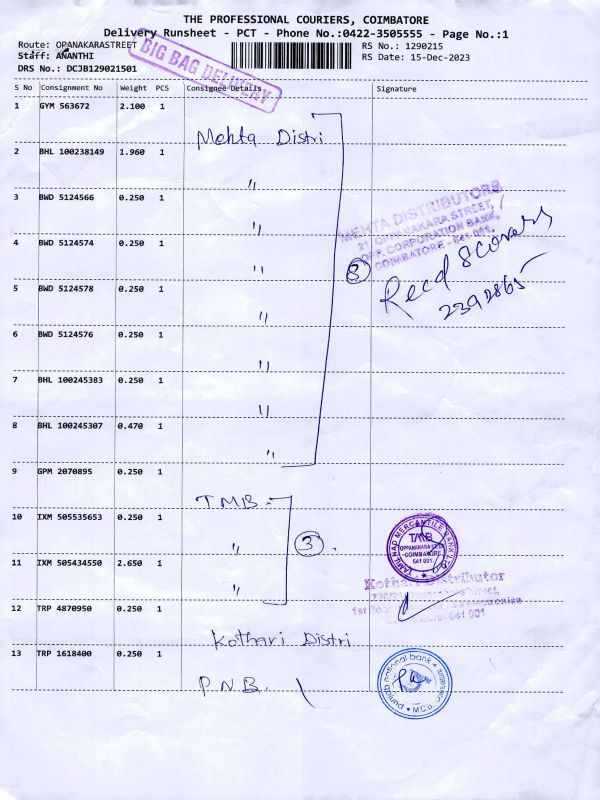 THE PROFESSIONAL COURIERS, COIMBATORE
Delivery Runsheet - PCT - Phone No.:0422-3505555 - Page No.:1
Route: OPANAKARASTREET
RS No.: 1290215
Staff: ANANTHI
RS Date: 15-Dec-2023
DRS No.: DCJB129021501
BIG BAG DELIVERY
S No Consignment No Weight PCS Consignee Details Signature
1 GYM 563672 2.100 1
Mehta Distri
2 BHL 100238149 1.960 1
"
3 BWD 5124566 0.250 1
"
MEHTA DISTRIBUTORS
21, OPPANAKARA STREET,
OPP. CORPORATION BANK,
COIMBATORE - 641 001.
4 BWD 5124574 0.250 1
"
8
Recd 8 covers
5 BWD 5124578 0.250 1
"
6 BWD 5124576 0.250 1
"
7 BHL 100245383 0.250 1
"
8 BHL 100245307 0.470 1
"
9 GPM 2070895 0.250 1
TMB
10 IXM 505535653 0.250 1
"
3
TAMILNAD MERCANTILE BANK LTD
TMB
OPPANAKARA ST
COIMBATORE
641 001
11 IXM 505434550 2.650 1
"
Kothari Distributor
641 001
12 TRP 4870950 0.250 1
Kothari Distri
13 TRP 1618400 0.250 1
P.N.B.
punjab national bank